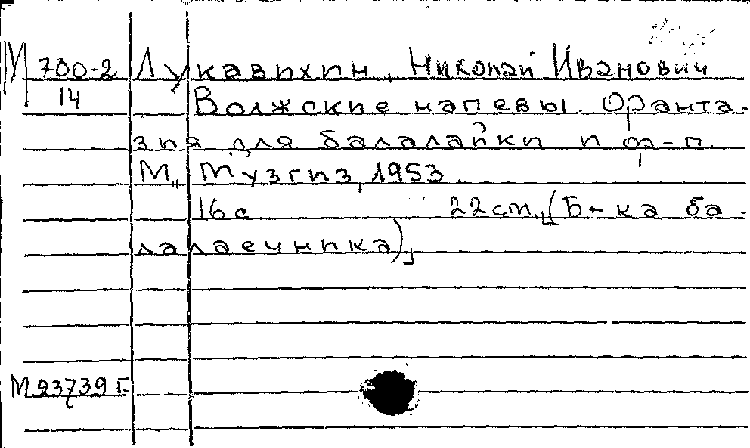 М 700-2 Лукавихин, Николай Иванович
14 Волжские напевы. Фанта-
зия для балалайки и ф-п.
М., Музгиз, 1953.
16 с 22 см. (Б-ка ба-
лалаечника)
М 23739 г.